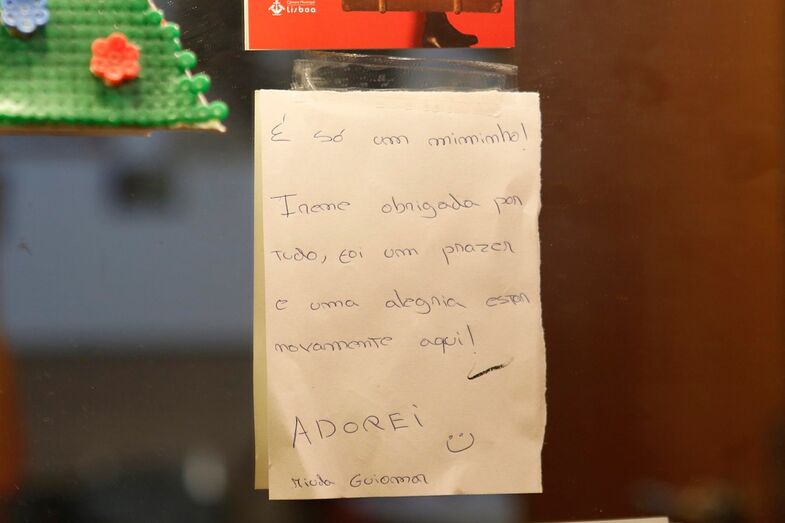 Câmara Municipal
Lisboa
É só um miminho!
Irene obrigada por
tudo, foi um prazer
e uma alegria estar
novamente aqui!
ADOREi
Miúda Guiomar